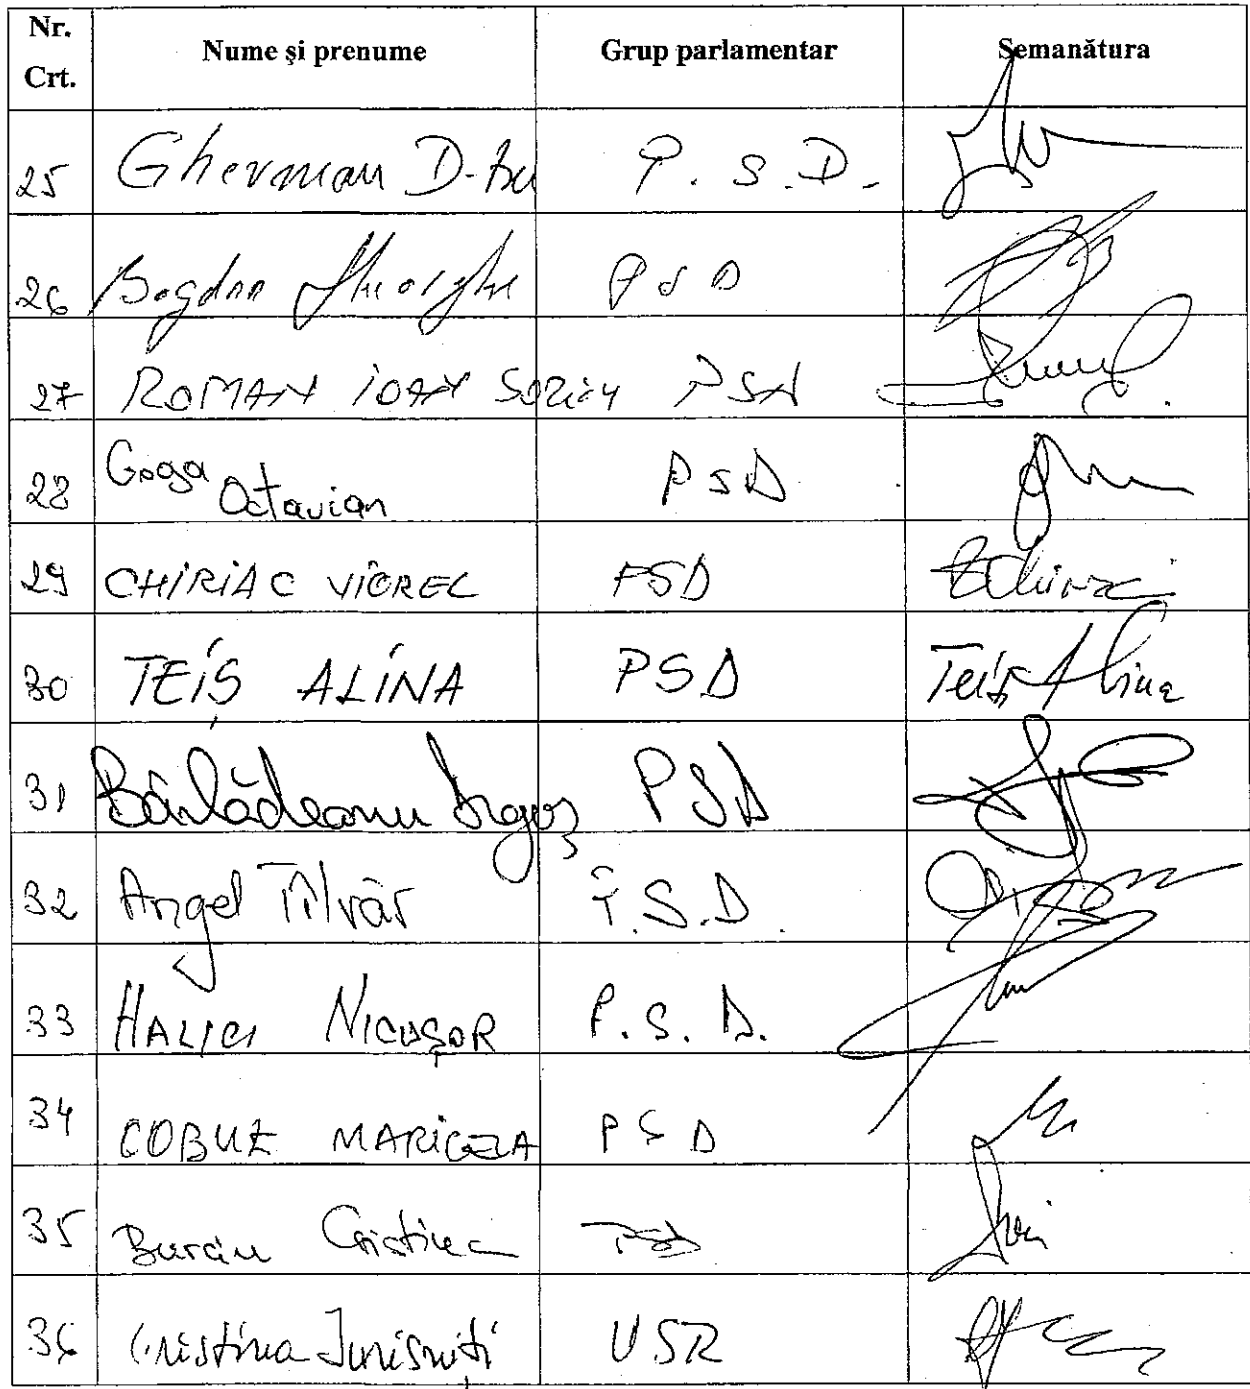 Nr. Crt. Nume și prenume Grup parlamentar Semanătura
25 Gherman D-tru P.S.D.
26 Bogdan Gheorghe PSD
27 ROMAN IOAN SORIN PSD
28 Goga Octavian PSD
29 CHIRIAC VIOREL PSD
30 TEIȘ ALINA PSD Teiș Alina
31 Bârlădeanu Dragoș PSD
32 Angel Tîlvăr P.S.D.
33 HALICI NICUȘOR P.S.D.
34 COBUZ MARICELA PSD
35 Burciu Cristina PSD
36 Cristina Iurișniți USR